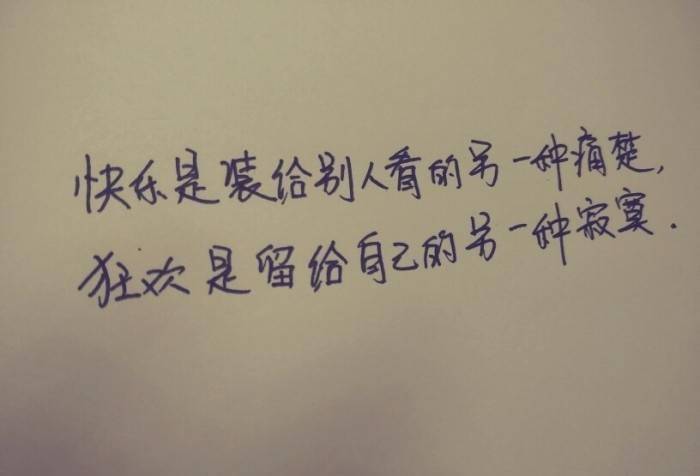 快乐是装给别人看的另一种痛楚,
狂欢是留给自己的另一种寂寞.